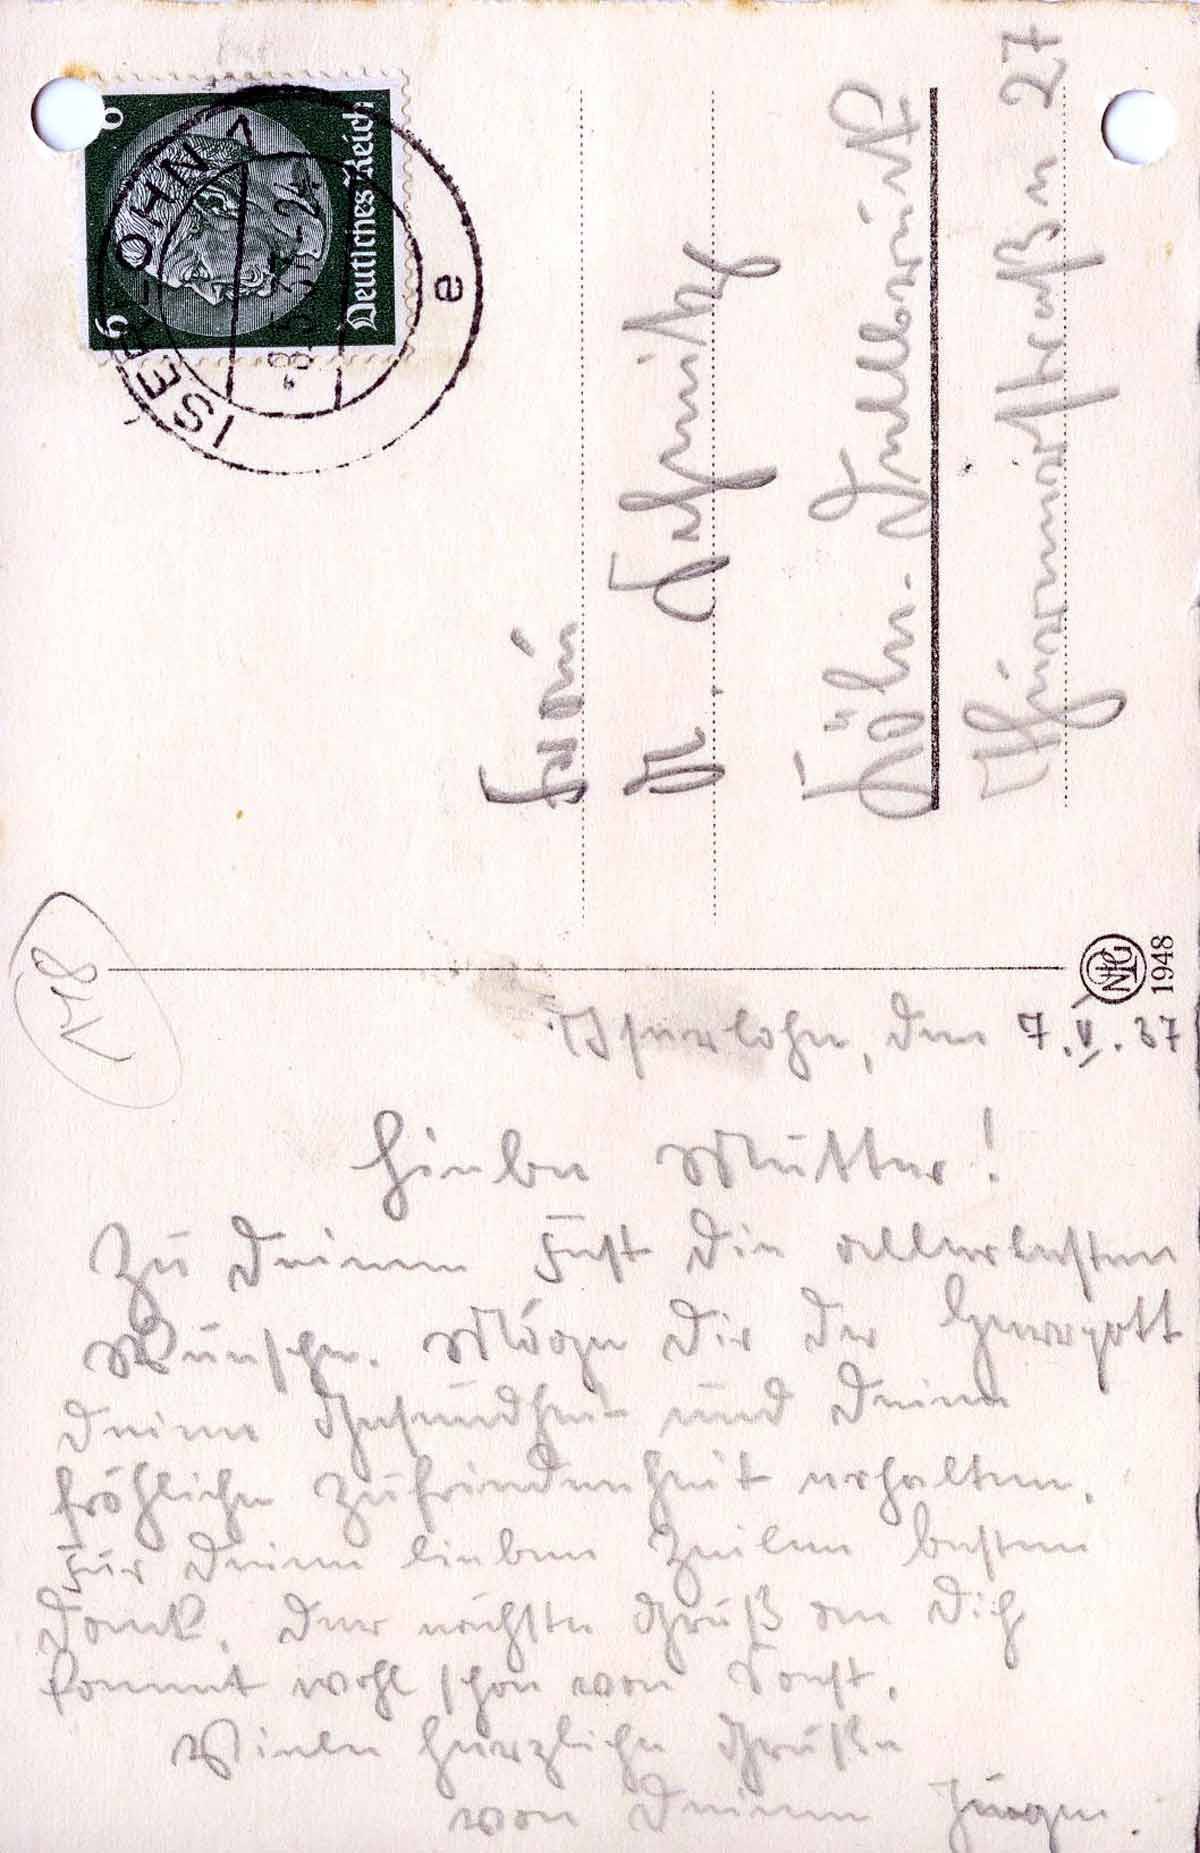 Iserlohn, den 7.V.37
Liebe Mutter!
Zu Deinem Fest die allerbesten
Wünsche. Möge Dir der Herrgott
Deine Gesundheit und Deine
fröhliche Zufriedenheit erhalten.
Für Deine lieben Zeilen besten
Dank. Der nächste Gruß an Dich
kommt wohl schon von Soest.
Viele herzliche Grüße
von Deinem Jürgen.
148
NPG
1948
ISERLOHN 1
e
6 6
Deutsches Reich
Frau
M. Schmitz
Köln-Dellbrück
Thurnerstraße 27